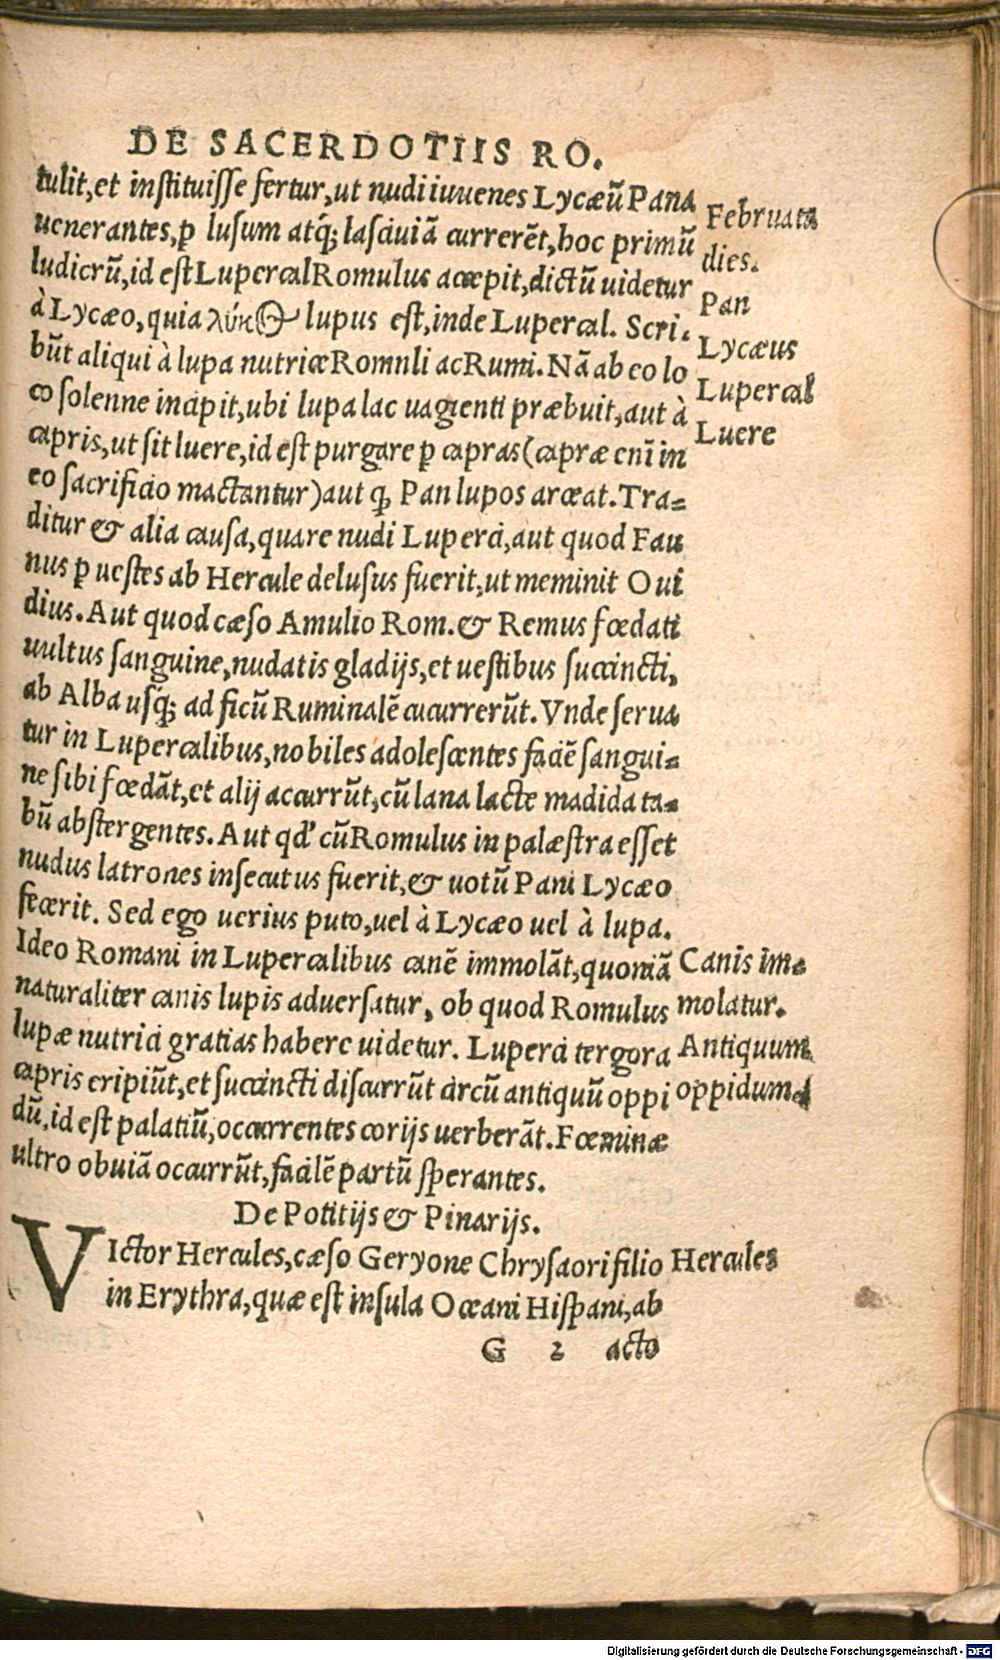 DE SACERDOTIIS RO.
tulit, et instituisse fertur, ut nudi iuuenes Lycæũ Pana
uenerantes, ꝑ lusum atq́; lasciuiã currerẽt, hoc primũ
ludicrũ, id est Lupercal Romulus accepit, dictũ uidetur
à Lycæo, quia λύκος lupus est, inde Lupercal. Scri-
bũt aliqui à lupa nutrice Romnli ac Rumi. Nã ab eo lo
co solenne incipit, ubi lupa lac uagienti præbuit, aut à
capris, ut sit luere, id est purgare ꝑ capras (capræ enĩ in
eo sacrificio mactantur) aut ꝙ Pan lupos arceat. Tra-
ditur & alia causa, quare nudi Luperci, aut quod Fau
nus ꝑ uestes ab Hercule delusus fuerit, ut meminit Oui
dius. Aut quod cæso Amulio Rom. & Remus fœdati
uultus sanguine, nudatis gladijs, et uestibus succincti,
ab Alba usq́; ad ficũ Ruminalẽ cucurrerũt. Vnde serua
tur in Lupercalibus, nobiles adolescentes faciẽ sangui-
ne sibi fœdãt, et alij accurrũt, cũ lana lacte madida ta-
bũ abstergentes. Aut qd' cũ Romulus in palæstra esset
nudus latrones insecutus fuerit, & uotũ Pani Lycæo
fecerit. Sed ego uerius puto, uel à Lycæo uel à lupa.
Ideo Romani in Lupercalibus canẽ immolãt, quoniã
naturaliter canis lupis aduersatur, ob quod Romulus
lupæ nutrici gratias habere uidetur. Luperci tergora
capris eripiũt, et succincti discurrũt circũ antiquũ oppi
dũ, id est palatiũ, occurrentes corijs uerberãt. Fœminæ
ultro obuiã occurrũt, facilẽ partũ sperantes.
Februata
dies.
Pan
Lycæus
Lupercal
Luere
Canis im-
molatur.
Antiquum
oppidum
De Potitijs & Pinarijs.
VIctor Hercules, cæso Geryone Chrysaori filio
in Erythra, quæ est insula Oceani Hispani, ab
Hercules
G 2 acto
Digitalisierung gefördert durch die Deutsche Forschungsgemeinschaft - DFG